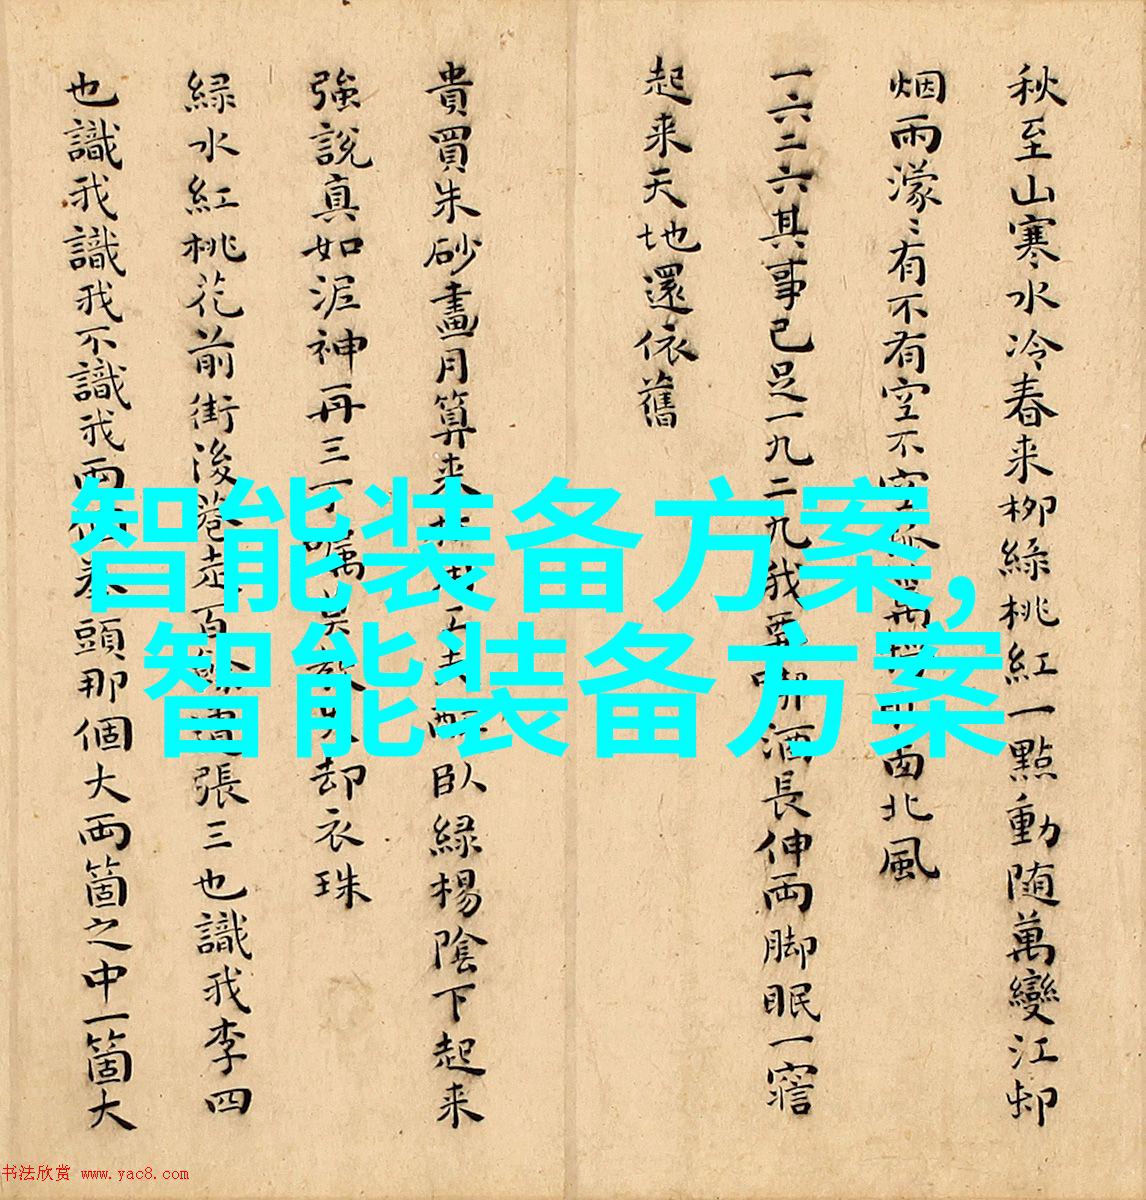 秋至山寒水冷春来柳綠桃紅一點動随萬變江邨
烟雨濛〻有不有空不空西北風
一六二六其事已足一九二九我要酒長伸両脚眠一寤
起来天地還依舊
貴買朱砂畫月算来臥綠楊陰下起来
強說真如泥神再三丁嘱却衣珠
綠水紅桃花前街後巷走百張三也識我李四
也識我識我不識我両頭那個大両箇之中一箇大
智能装备方案,
智能装备方案
书法欣赏 www.yac8.com